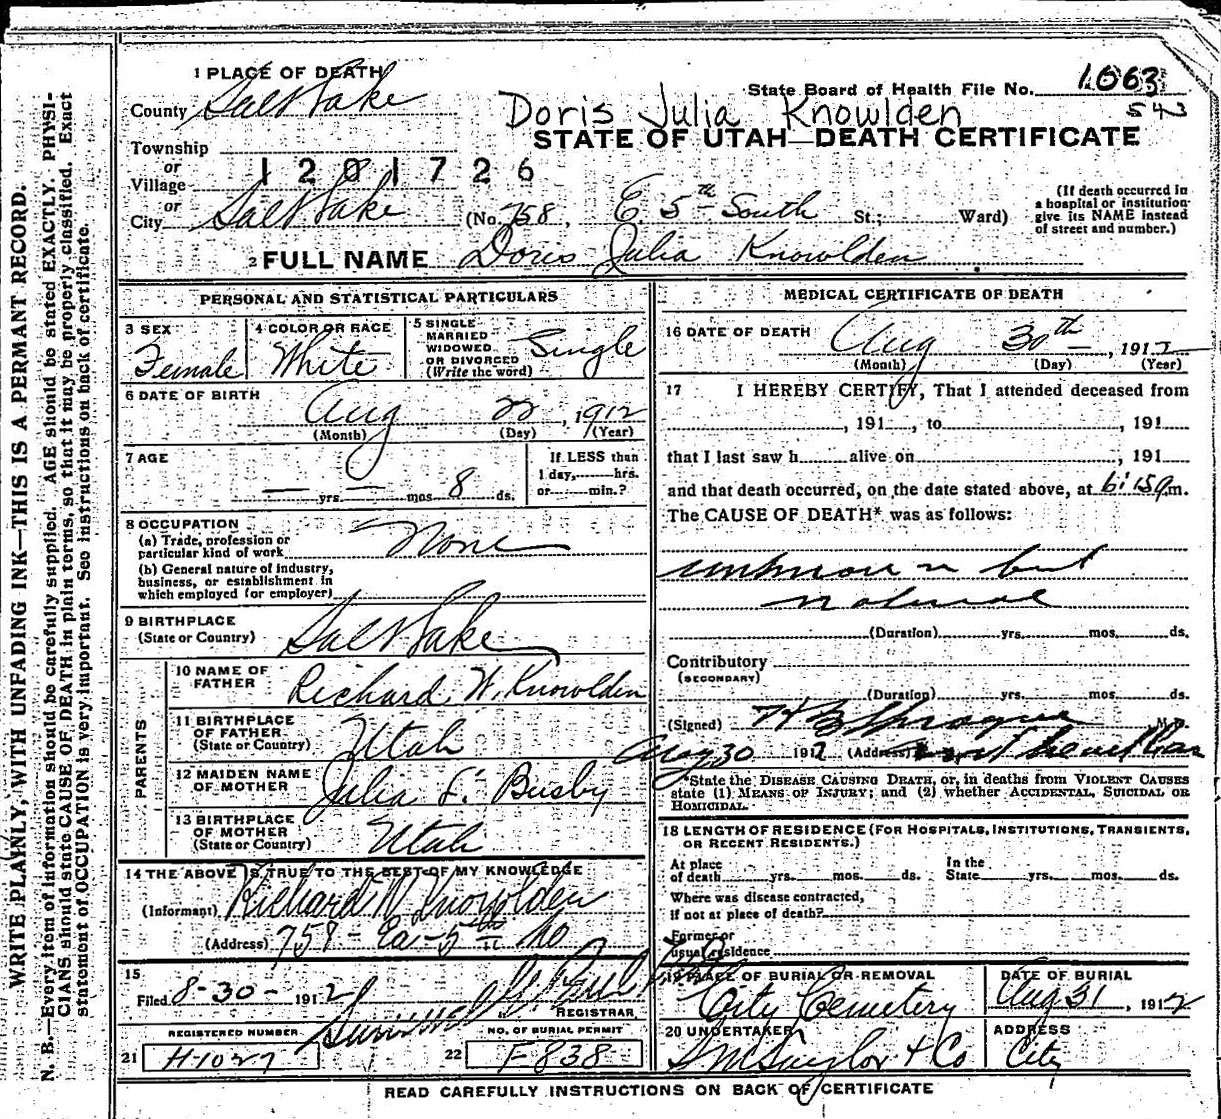 1 PLACE OF DEATH
County Salt Lake
State Board of Health File No. 1663
543
Doris Julia Knowlden
STATE OF UTAH—DEATH CERTIFICATE
Township
or
Village
1201726
or
City Salt Lake (No. 758, E 5th South St.; Ward)
(If death occurred in
a hospital or institution
give its NAME instead
of street and number.)
2 FULL NAME Doris Julia Knowlden
PERSONAL AND STATISTICAL PARTICULARS
3 SEX
Female
4 COLOR OR RACE
White
5 SINGLE
MARRIED
WIDOWED
OR DIVORCED
(Write the word)
Single
6 DATE OF BIRTH
Aug 22, 1912
(Month) (Day) (Year)
7 AGE
— yrs. — mos. 8 ds.
If LESS than
1 day, hrs.
or min.?
8 OCCUPATION
(a) Trade, profession or
particular kind of work None
(b) General nature of industry,
business, or establishment in
which employed (or employer)
9 BIRTHPLACE
(State or Country) Salt Lake
PARENTS
10 NAME OF
FATHER Richard W. Knowlden
11 BIRTHPLACE
OF FATHER
(State or Country) Utah
12 MAIDEN NAME
OF MOTHER Julia E. Busby
13 BIRTHPLACE
OF MOTHER
(State or Country) Utah
14 THE ABOVE IS TRUE TO THE BEST OF MY KNOWLEDGE
(Informant) Richard W Knowlden
(Address) 758 - Ea - 5th So
15
Filed 8-30- 1912
REGISTRAR
REGISTERED NUMBER
21 H1027
NO. OF BURIAL PERMIT
22 F838
MEDICAL CERTIFICATE OF DEATH
16 DATE OF DEATH
Aug 30th, 1912
(Month) (Day) (Year)
17 I HEREBY CERTIFY, That I attended deceased from
, 191 , to , 191
that I last saw h alive on , 191
and that death occurred, on the date stated above, at 6:15 a m.
The CAUSE OF DEATH* was as follows:
unknown but
natural
(Duration) yrs. mos. ds.
Contributory
(SECONDARY)
(Duration) yrs. mos. ds.
(Signed) H B Sprague M.D.
Aug 30 1912 (Address)
*State the DISEASE CAUSING DEATH, or, in deaths from VIOLENT CAUSES
state (1) MEANS OF INJURY; and (2) whether ACCIDENTAL, SUICIDAL OR
HOMICIDAL.
18 LENGTH OF RESIDENCE (FOR HOSPITALS, INSTITUTIONS, TRANSIENTS,
OR RECENT RESIDENTS.)
At place
of death yrs. mos. ds.
In the
State yrs. mos. ds.
Where was disease contracted,
if not at place of death?
Former or
usual residence
19 PLACE OF BURIAL OR REMOVAL
City Cemetery
DATE OF BURIAL
Aug 31, 1912
20 UNDERTAKER
S M Taylor & Co
ADDRESS
City
READ CAREFULLY INSTRUCTIONS ON BACK OF CERTIFICATE
WRITE PLAINLY, WITH UNFADING INK—THIS IS A PERMANT RECORD.
N. B.—Every item of information should be carefully supplied. AGE should be stated EXACTLY. PHYSI-
CIANS should state CAUSE OF DEATH in plain terms, so that it may be properly classified. Exact
statement of OCCUPATION is very important. See instructions on back of certificate.